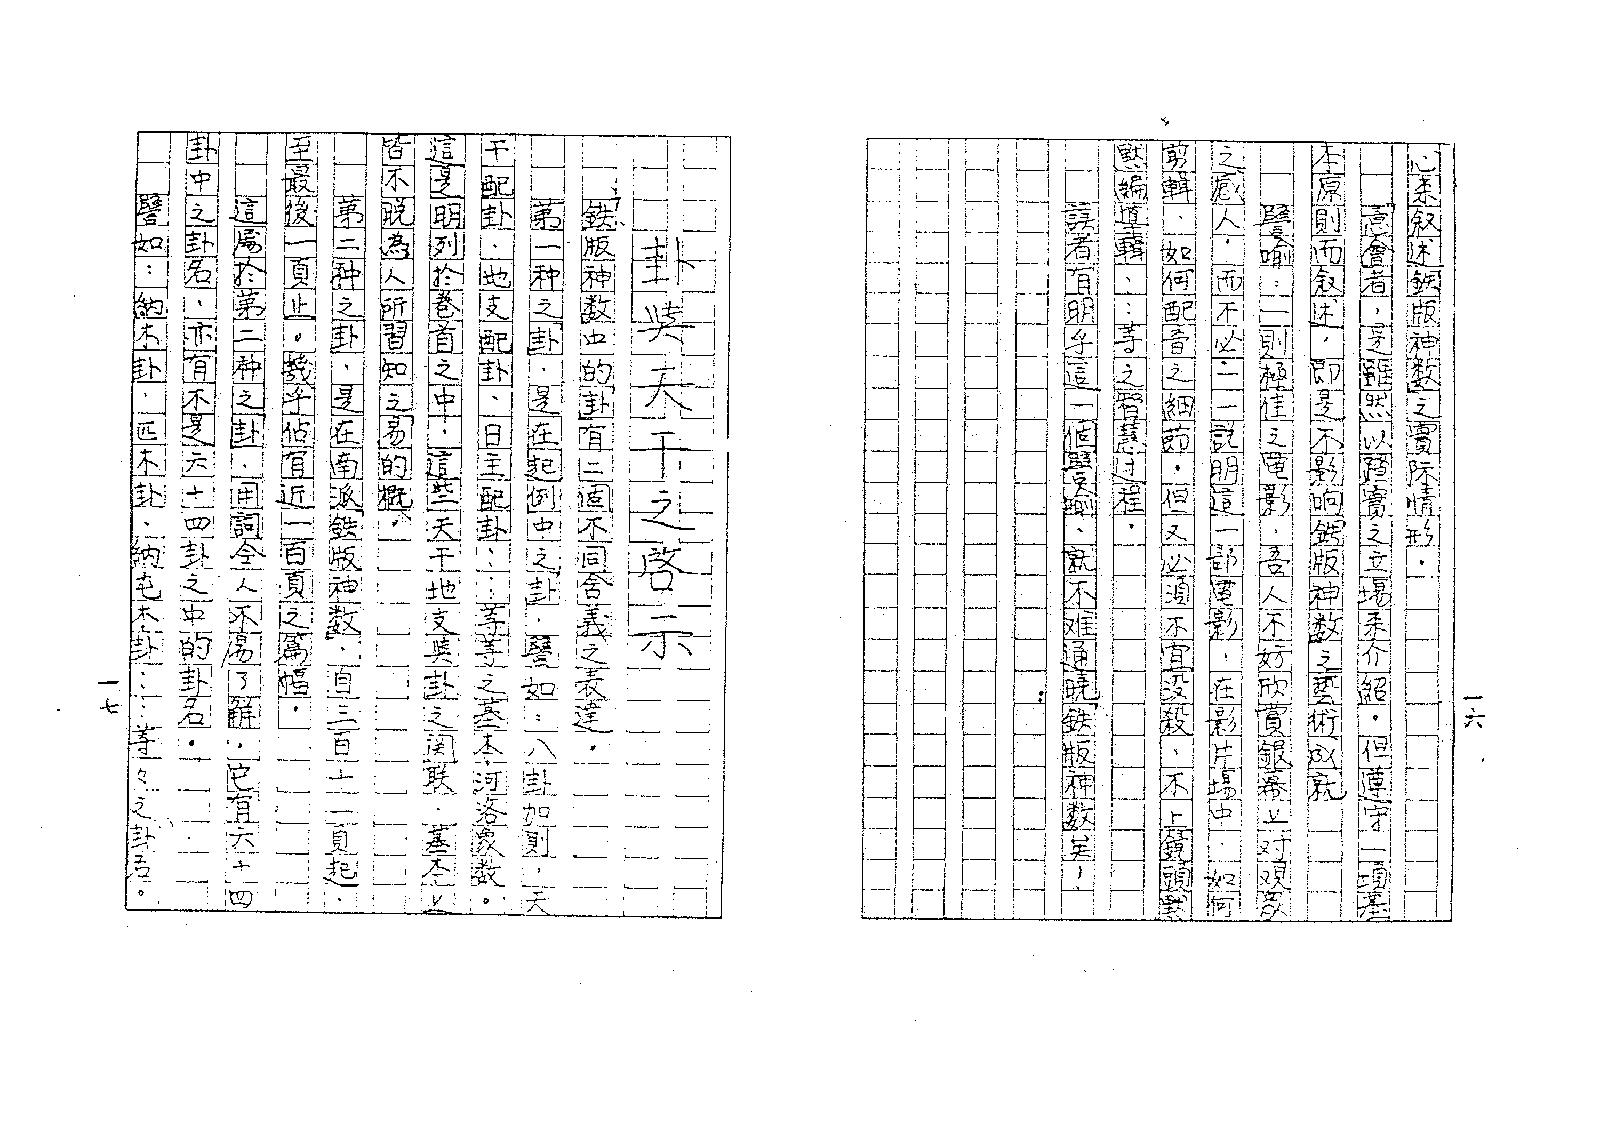 心来叙述鉄版神数之實际情形．
意會者，是雖然以踏實之立場来介紹．但遵守一項基
本原則而叙述，即是不影响鉄版神数之藝術成就
譬喻：一則極佳之電影，吾人不妨欣賞銀幕上对观衆
之感人．而不必一一説明這一部電影，在影片場中．如何
剪輯、如何配音之細節．但又必須不宜没殺、不上鏡頭
編導輯：：等之智慧过程．
読者有明乎這一個譬喻、就不难通曉鉄版神数矣！
一六
卦與天干之啓示
「鉄版神数中的卦」有二個不同含義之表達．
第一种之卦．是在起例中之卦．譬如：八卦加則，天
干配卦．地支配卦、日主配卦：：等等之基本河洛象数。
這是明列於卷首之中．這些天干地支與卦之関联．基本上
皆不脱為人所習知之易的概．
第二种之卦．是在南派鉄版神数．自三百二頁起．
至最後一頁止．幾乎佔有近一百頁之篇幅．
這属於第二种之卦．用詞令人不易了解．它有六十四
卦中之卦名、亦有不是六十四卦之中的卦名．
譬如：納木卦．匹木卦．納屯木卦：：等々之卦名。
一七